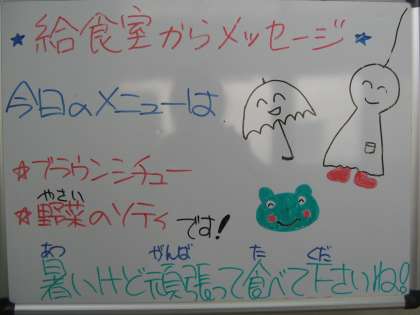 ★給食室からメッセージ★
今日のメニューは
☆ブラウンシチュー
やさい
☆野菜のソティです!
あつ がんば た くだ
暑いけど頑張って食べて下さいね!